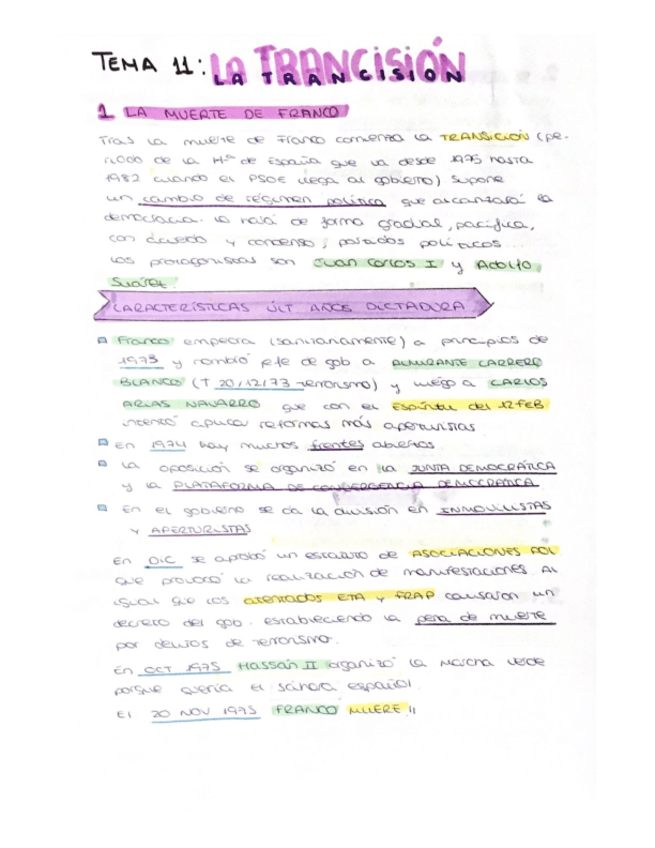 TEMA 11: LA TRANCISIÓN
LA TRANCISION
1 LA MUERTE DE FRANCO
Tras la muerte de Franco comienza la TRANSICIÓN (pe-
riodo de la Hª de España que va desde 1975 hasta
1982 cuando el PSOE llega al gobierno) supone
un cambio de régimen político que alcanzará la
democracia. Lo hará de forma gradual, pacífica,
con acuerdo y concenso, pasados políticos...
Los protagonistas son Juan Carlos I y Adolfo
Suárez.
CARACTERÍSTICAS ÚLT AÑOS DICTADURA
Franco empeora (sanitariamente) a principios de
1973 y nombró jefe de gob a ALMIRANTE CARRERO
BLANCO (T 20/12/73 terrorismo) y luego a CARLOS
ARIAS NAVARRO que con el Espíritu del 12 FEB
intentó aplicar reformas más aperturistas
En 1974 hay muchos frentes abiertos
La oposición se organizó en la JUNTA DEMOCRÁTICA
y la PLATAFORMA DE CONVERGENCIA DEMOCRÁTICA
En el gobierno se da la división en INMOVILISTAS
Y APERTURISTAS
En DIC se aprobó un estatuto de ASOCIACIONES POL
que provocó la realización de manifestaciones. Al
igual que los atentados ETA y FRAP causaron un
decreto del gob. estableciendo la pena de muerte
por delitos de terrorismo.
En OCT 1975 Hassán II organizó la Marcha verde
porque quería el sáhara español.
El 20 NOV 1975 FRANCO MUERE!!